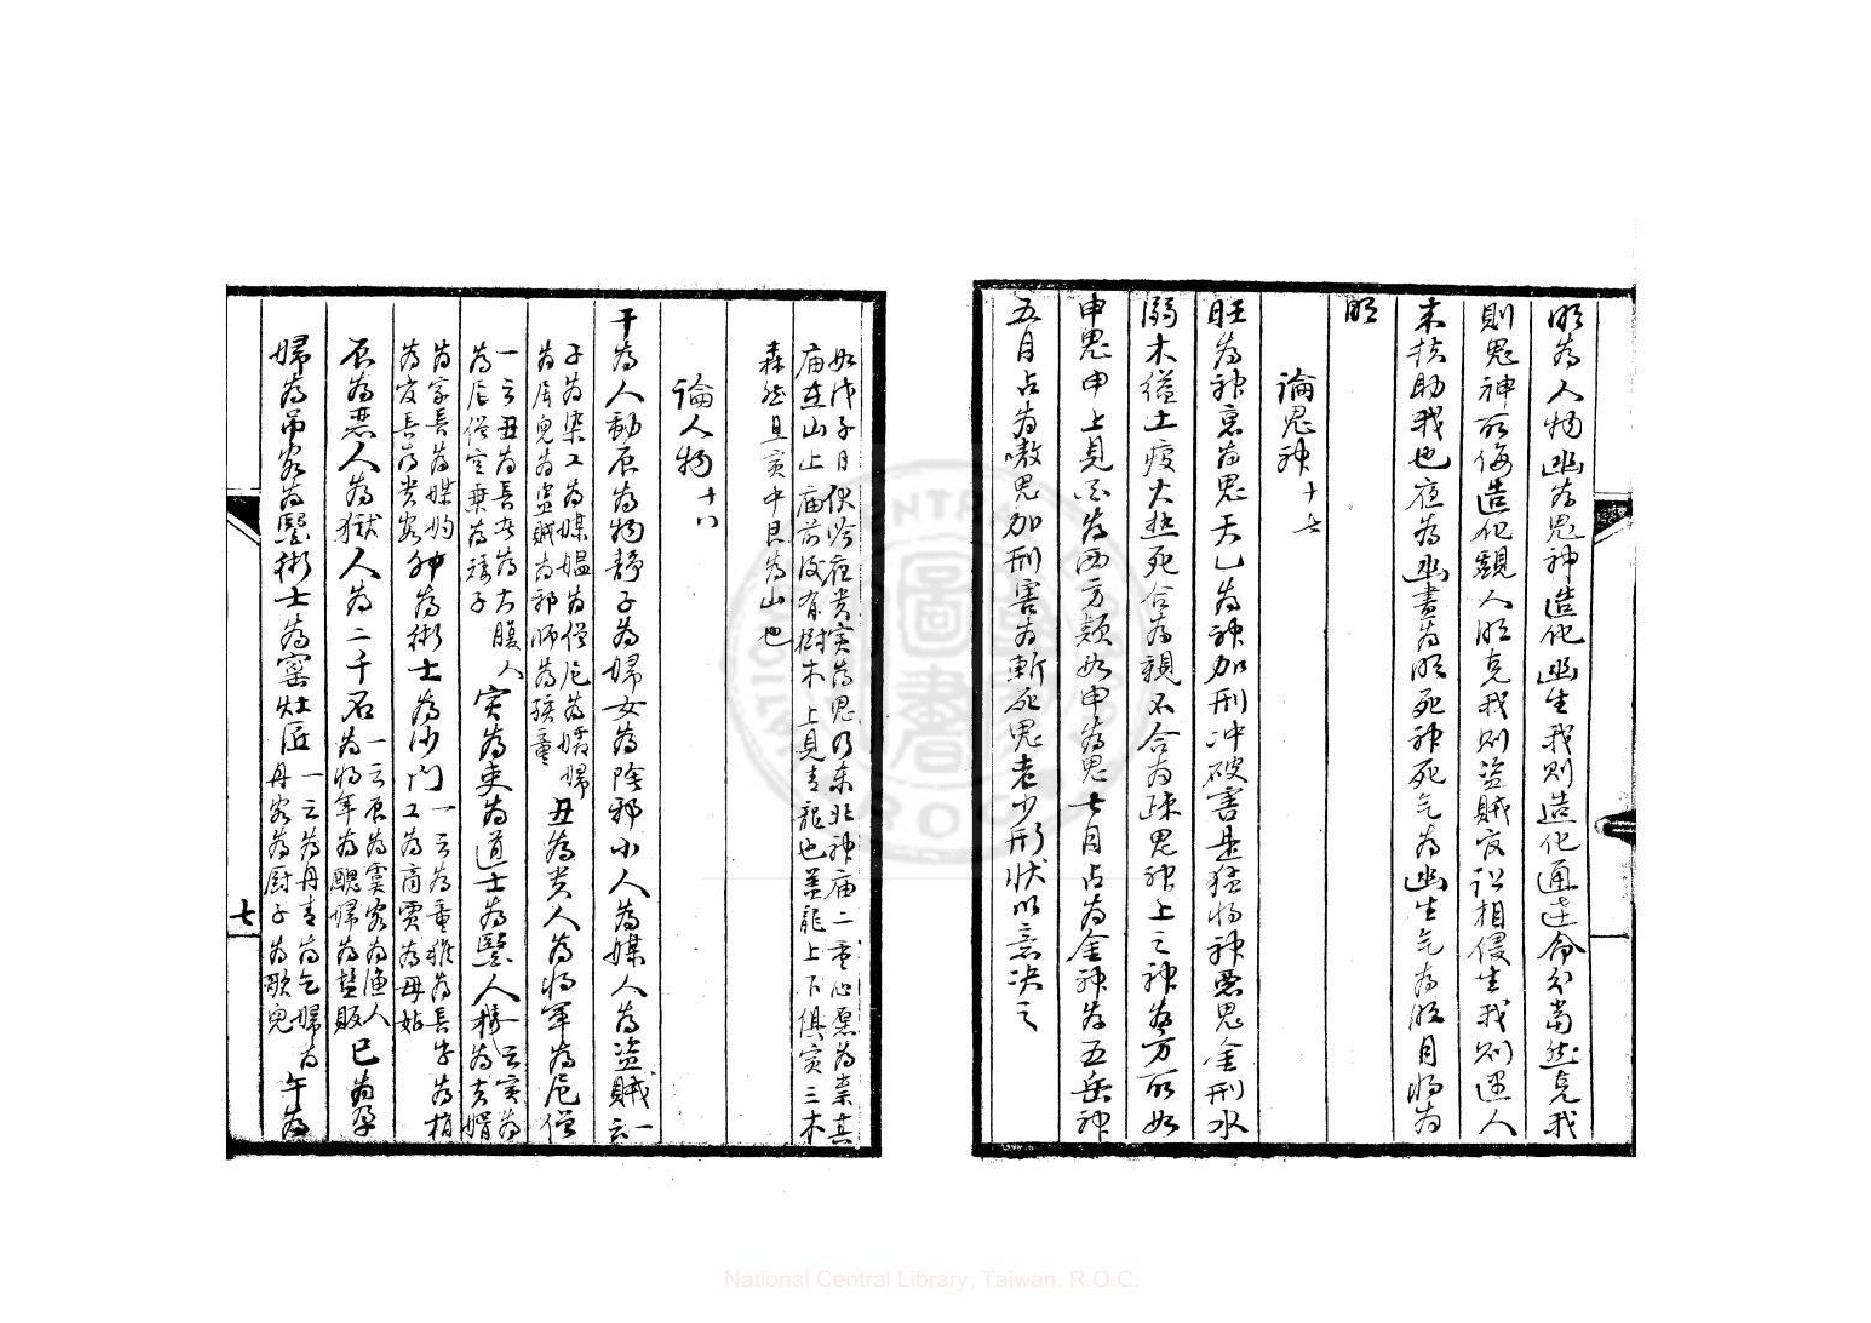 明為人物幽為鬼神造化幽生我則造化通達命分當然克我
則鬼神所侮造化顯人明克我則盜賊官訟相侵生我則遇人
來扶助我也夜為幽晝為明死神死气為幽生气為明月將為
明
論鬼神十七
旺為神衰為鬼天乙為神加刑冲破害是猛將神惡鬼金刑水
溺木縊土瘟火热死合為親不合為疎鬼神上之神為方所如
申鬼申上見為西方類如申為鬼七月占為金神為五岳神
五月占為嗷鬼加刑害為斬死鬼老少形状以意决之
如戊子日伏吟夜貴寅為鬼乃東北神庙二重心愿為祟其
庙在山上庙前後有樹木上見青龍也盖龍上下俱寅三木
森然且寅中艮為山也
論人物十八
干為人動辰為物靜子為婦女為陰邪小人為媒人為盜賊一云
子為染工為媒媪為僧尼為媚婦
為屠兒為盜賊為邪師為孩童
丑為貴人為將軍為尼僧
一云丑為長者為大腹人
為尼僧宣乗為矮子
寅為吏為道士為醫人一云寅為
為夫婿
為家長為媒妁
為官長為貴客
卯為術士為沙門一云為童稚為長子為梢
工為商賈為母姑
辰為惡人為獄人為二千石一云辰為宾客為漁人
為將軍為醜婦為盐販
巳為孕
婦為吊客為醫術士為窑灶匠一云為丹青為乞婦為
丹客為厨子為歌兒
午為
七
National Central Library, Taiwan, R.O.C.